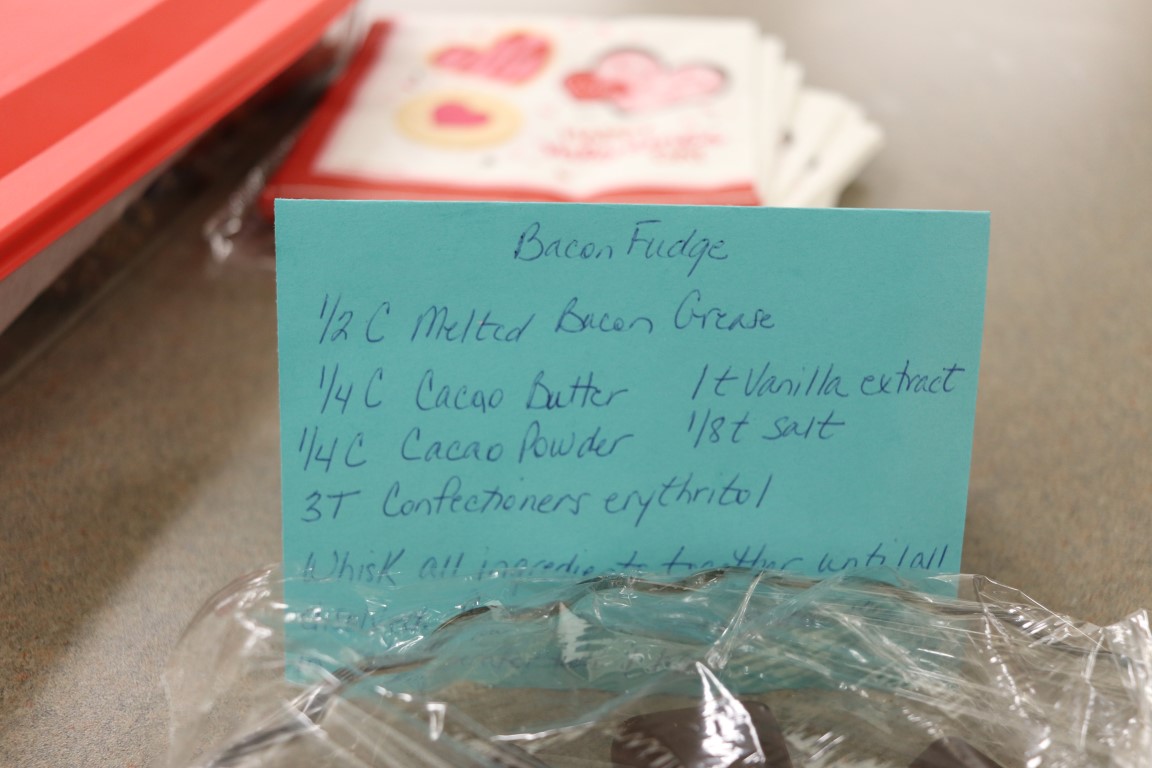 Bacon Fudge
1/2 C Melted Bacon Grease
1/4 C Cacao Butter
1/4 C Cacao Powder
1t Vanilla extract
1/8t salt
3T Confectioners erythritol
Whisk all ingredients together until all